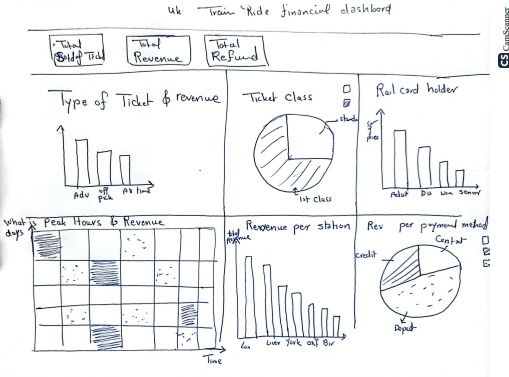 Uk Train Ride financial dashbord
CS CamScanner
Total
Sold of Tickt
Total
Revenue
Total
Refund
Type of Ticket & revenue
Adv
off
pick
Any time
Ticket class
Standa
1st Class
Rail card holder
price
Adult
Dis
non
Senior
What is Peak Hours & Revenue
days
Time
Revenue per station
total
revenue
Lon
Liver
York
oxf
Bir
Rev per payment method
Credit
Contact